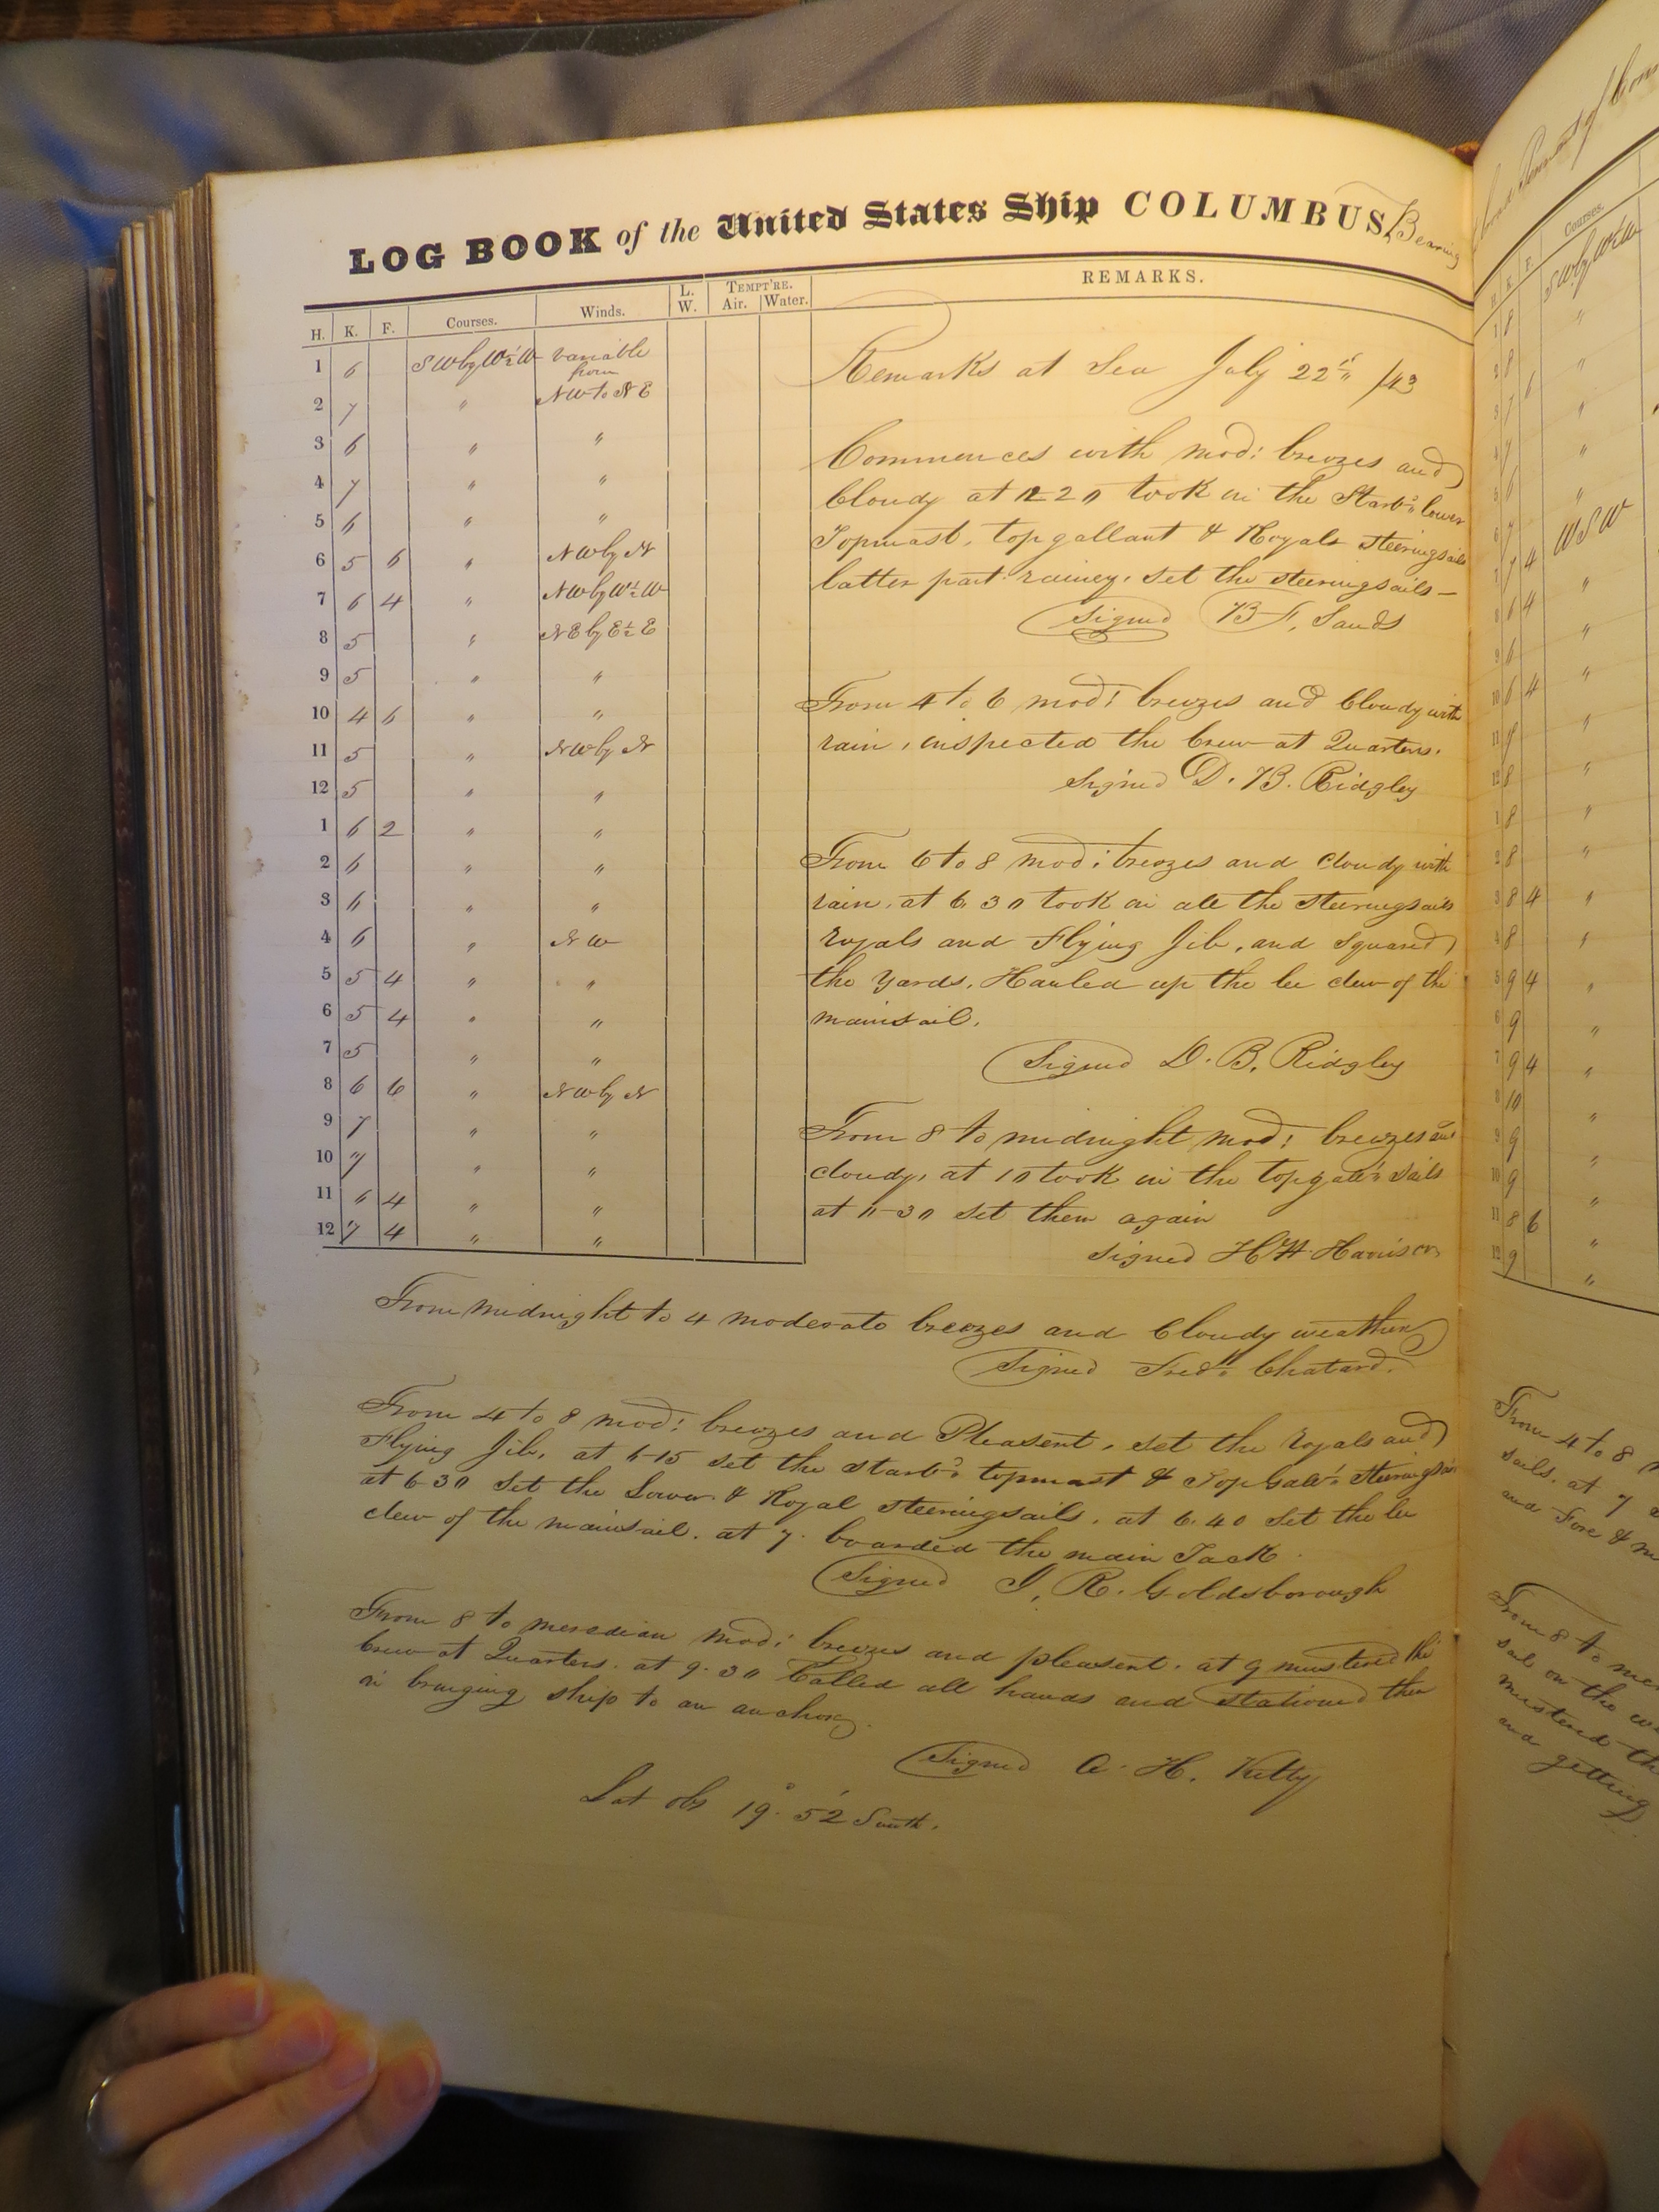 LOG BOOK of the United States Ship COLUMBUS, Bearing
H. K. F. Courses. Winds. L. W. TEMPT'RE. Air. Water. REMARKS.
1 6 SWbyW½W variable from
2 7 " NW to NE
3 6 " "
4 7 " "
5 6 " "
6 5 6 " NWbyN
7 6 4 " NWbyW½W
8 5 " NEbyE½E
9 5 " "
10 4 6 " "
11 5 " NWbyN
12 5 " "
1 6 2 " "
2 6 " "
3 6 " "
4 6 " NW
5 5 4 " "
6 5 4 " "
7 5 " "
8 6 6 " NWbyN
9 7 " "
10 7 " "
11 6 4 " "
12 7 4 " "
Remarks at Sea July 22nd /43
Commences with mod: breezes and
Cloudy at 12 20 took in the Starbd lower
Topmast, topgallant & Royals steeringsails
latter part rainey, set the steeringsails—
Signed B F, Sands
From 4 to 6 mod: breezes and Cloudy with
rain, inspected the Crew at Quarters.
Signed D. B. Ridgley
From 6 to 8 mod: breezes and cloudy with
rain, at 6 30 took in all the steeringsails
royals and Flying Jib, and squared
the yards, Hauled up the lee clew of the
mainsail.
Signed D. B, Ridgley
From 8 to midnight mod: breezes and
cloudy, at 10 took in the topgalt sails
at 11-30 set them again
Signed H H Harrison
From midnight to 4 moderate breezes and Cloudy weather
Signed Fredk Chatard.
From 4 to 8 mod: breezes and Pleasent, set the royals and
Flying Jib, at 4-15 set the starbd topmast & TopGalt Steeringsails
at 6 30 set the Lower & Royal steeringsails, at 6.40 set the lee
clew of the mainsail. at 7. boarded the main Tack
Signed J, R. Goldsborough
From 8 to meredian mod: breezes and pleasent. at 9 mustered the
Crew at Quarters. at 9.30 Called all hands and stationed them
in bringing ship to an anchor.
Signed A. H. Kilty
Lat obs 19° 52' South.
Courses.
SWbyW½W
WSW
From 4 to 8
sails. at 7
and Fore &
From 8 to mer
sail on the
mustered th
and getting